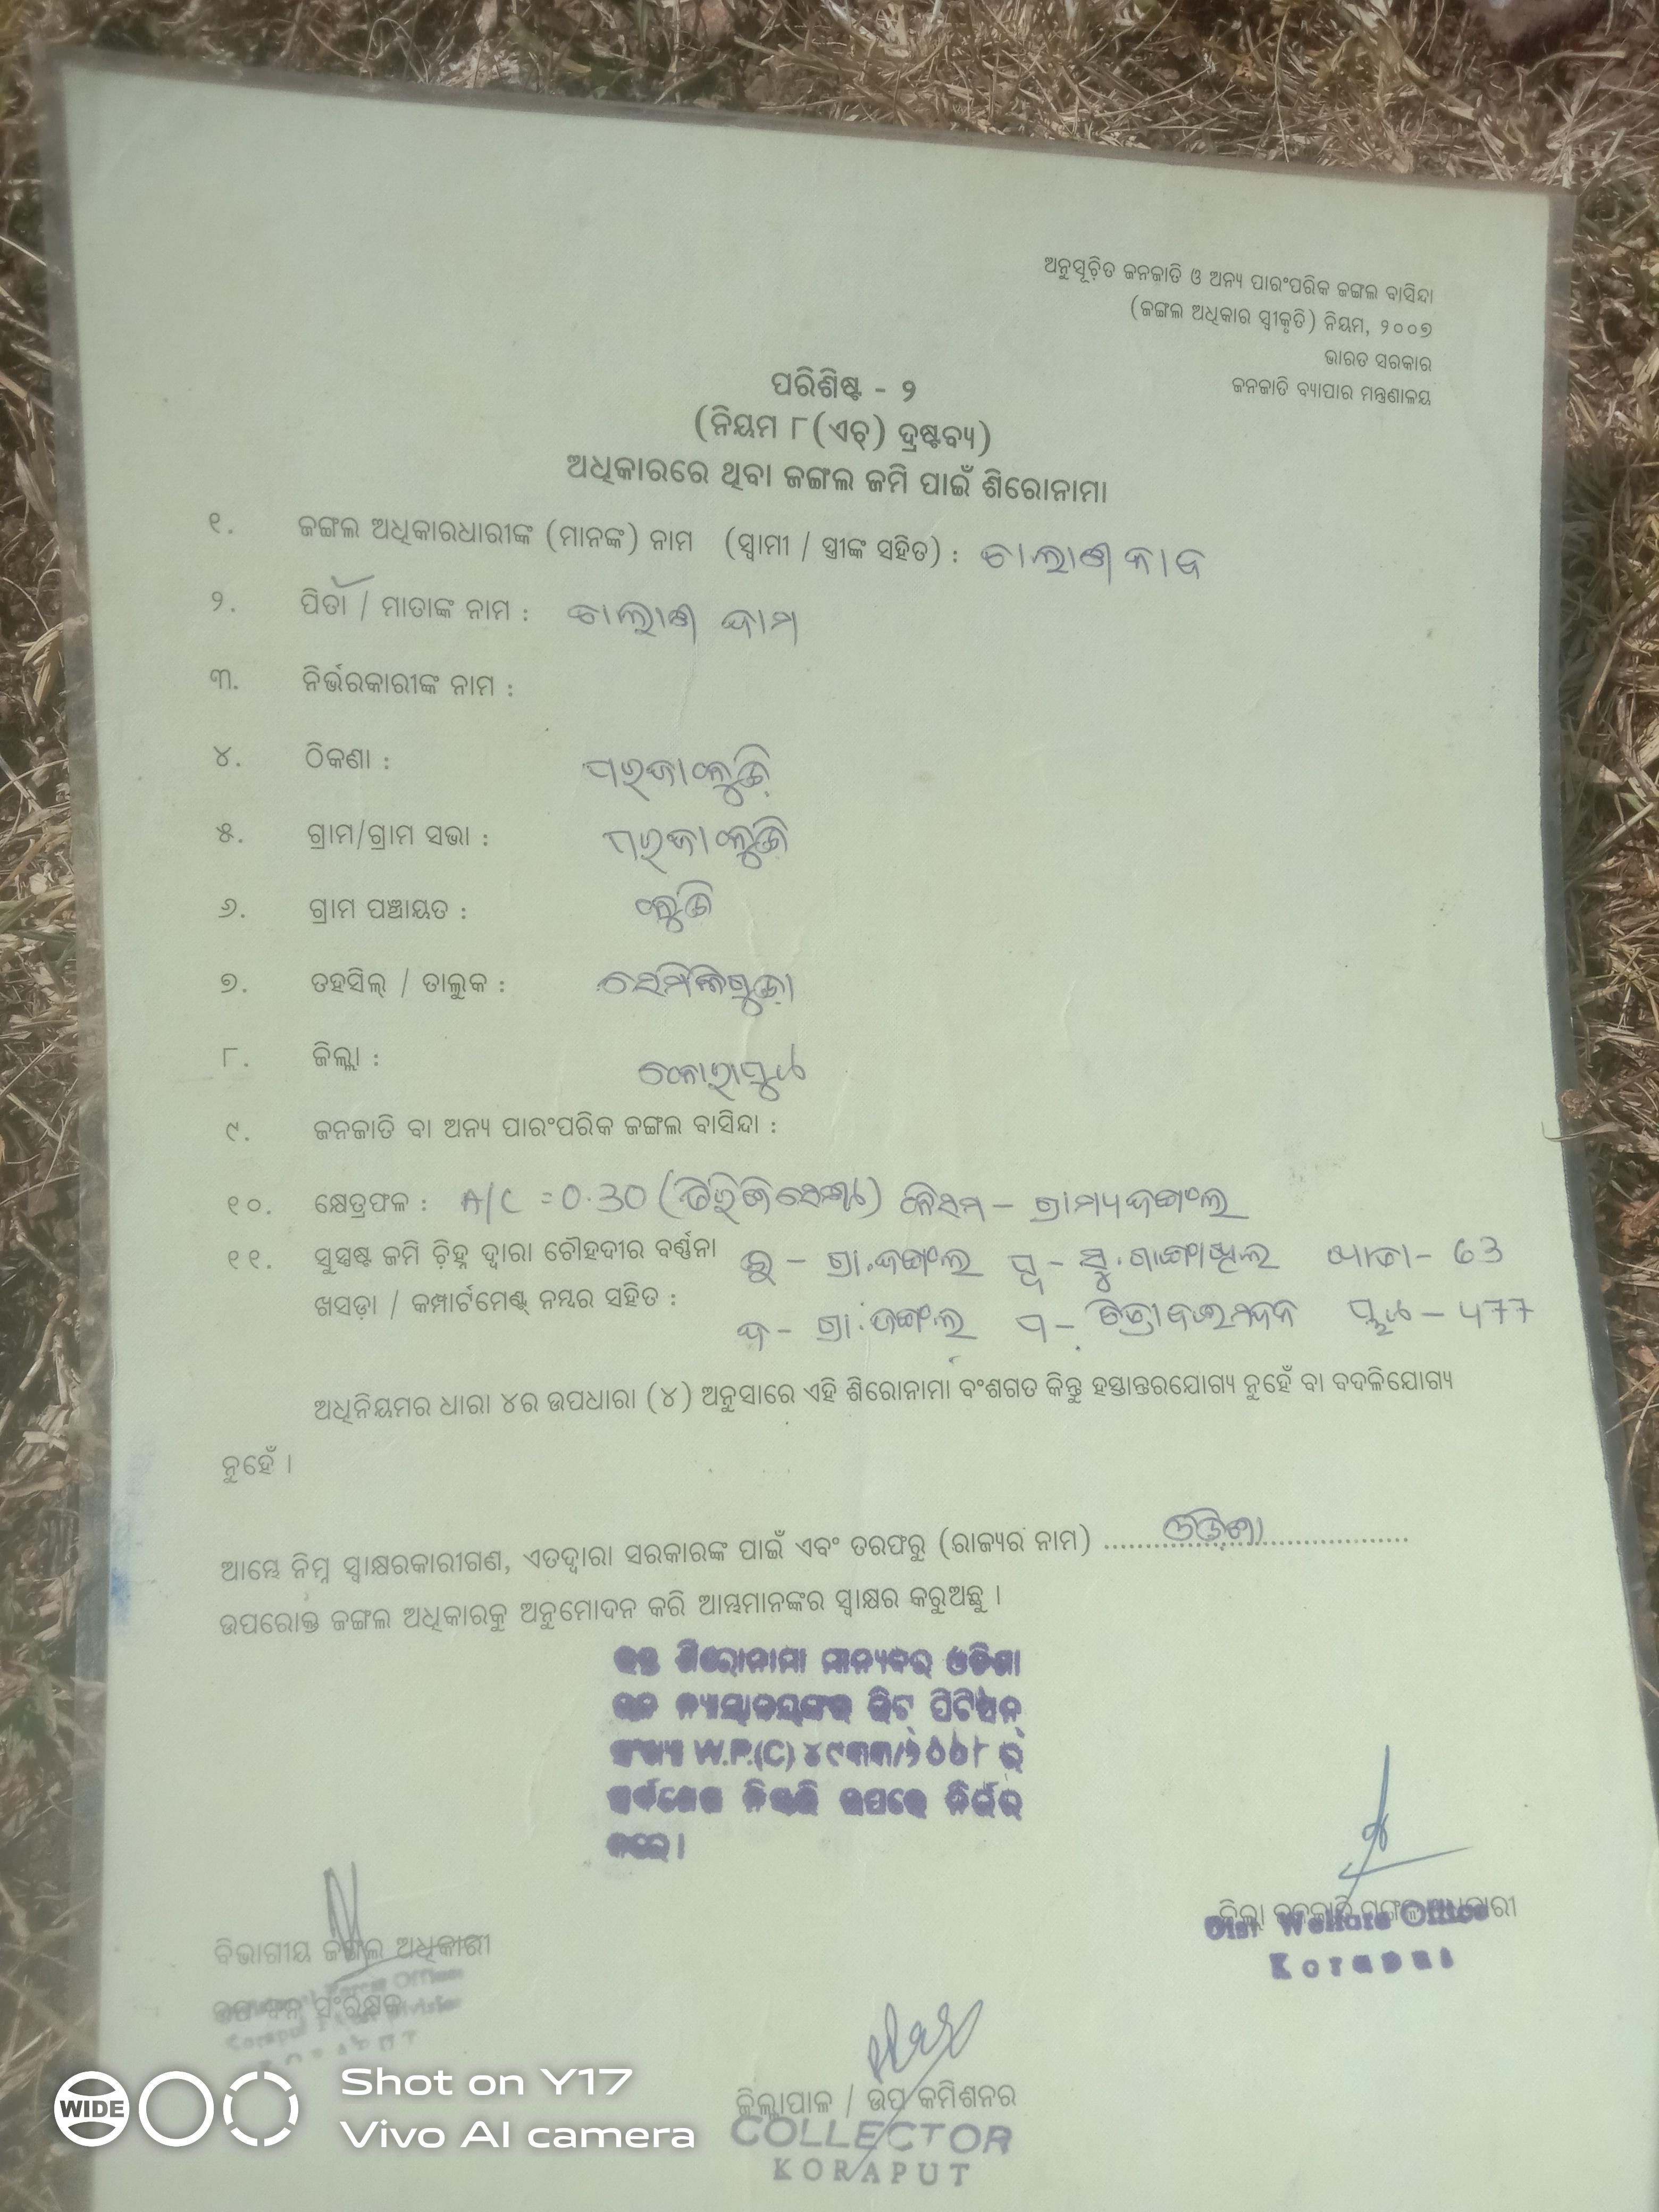 ଅନୁସୂଚିତ ଜନଜାତି ଓ ଅନ୍ୟ ପାରଂପରିକ ଜଙ୍ଗଲ ବାସିନ୍ଦା
(ଜଙ୍ଗଲ ଅଧିକାର ସ୍ୱୀକୃତି) ନିୟମ, ୨୦୦୭
ଭାରତ ସରକାର
ଜନଜାତି ବ୍ୟାପାର ମନ୍ତ୍ରଣାଳୟ
ପରିଶିଷ୍ଟ - ୨
(ନିୟମ ୮(ଏଚ୍) ଦ୍ରଷ୍ଟବ୍ୟ)
ଅଧିକାରରେ ଥିବା ଜଙ୍ଗଲ ଜମି ପାଇଁ ଶିରୋନାମା
୧. ଜଙ୍ଗଲ ଅଧିକାରଧାରୀଙ୍କ (ମାନଙ୍କ) ନାମ (ସ୍ୱାମୀ / ସ୍ତ୍ରୀଙ୍କ ସହିତ) :
୨. ପିତା / ମାତାଙ୍କ ନାମ :
୩. ନିର୍ଭରକାରୀଙ୍କ ନାମ :
୪. ଠିକଣା : ପରଜାକୁଡ଼ି
୫. ଗ୍ରାମ/ଗ୍ରାମ ସଭା : ପରଜାକୁଡ଼ି
୬. ଗ୍ରାମ ପଞ୍ଚାୟତ :
୭. ତହସିଲ୍ / ତାଲୁକ : ସେମିଳିଗୁଡ଼ା
୮. ଜିଲ୍ଲା : କୋରାପୁଟ
୯. ଜନଜାତି ବା ଅନ୍ୟ ପାରଂପରିକ ଜଙ୍ଗଲ ବାସିନ୍ଦା :
୧୦. କ୍ଷେତ୍ରଫଳ : A/C = 0.30 (ତିରିଶି ସେଣ୍ଟ) କିସମ – ଗ୍ରାମ୍ୟ ଜଙ୍ଗଲ
୧୧. ସୁସ୍ପଷ୍ଟ ଜମି ଚିହ୍ନ ଦ୍ୱାରା ଚୌହଦୀର ବର୍ଣ୍ଣନା ଉ – ଗ୍ରା.ଜଙ୍ଗଲ ପୂ – ଖାତା – 63
ଖସଡ଼ା / କମ୍ପାର୍ଟମେଣ୍ଟ୍ ନମ୍ବର ସହିତ : ଦ – ଗ୍ରା.ଜଙ୍ଗଲ ପ – ପ୍ଲଟ – 477
ଅଧିନିୟମର ଧାରା ୪ର ଉପଧାରା (୪) ଅନୁସାରେ ଏହି ଶିରୋନାମା ବଂଶଗତ କିନ୍ତୁ ହସ୍ତାନ୍ତରଯୋଗ୍ୟ ନୁହେଁ ବା ବଦଳିଯୋଗ୍ୟ
ନୁହେଁ ।
ଆମ୍ଭେ ନିମ୍ନ ସ୍ୱାକ୍ଷରକାରୀଗଣ, ଏତଦ୍ୱାରା ସରକାରଙ୍କ ପାଇଁ ଏବଂ ତରଫରୁ (ରାଜ୍ୟର ନାମ) ....ଓଡ଼ିଶା....
ଉପରୋକ୍ତ ଜଙ୍ଗଲ ଅଧିକାରକୁ ଅନୁମୋଦନ କରି ଆମ୍ଭମାନଙ୍କର ସ୍ୱାକ୍ଷର କରୁଅଛୁ ।
ଉକ୍ତ ଶିରୋନାମା ମାନ୍ୟବର ଓଡିଶା
ଉଚ୍ଚ ନ୍ୟାୟାଳୟଙ୍କର ରିଟ୍ ପିଟିସନ୍
ସଂଖ୍ୟା W.P.(C) ୪୯୩୩/୨୦୦୮ ର
ସର୍ବଶେଷ ନିଷ୍ପତ୍ତି ଉପରେ ନିର୍ଭର
କରେ ।
ବିଭାଗୀୟ ଜଙ୍ଗଲ ଅଧିକାରୀ
ଉପ ବନ ସଂରକ୍ଷକ
ଜିଲ୍ଲା ଜନଜାତି ମଙ୍ଗଳ ଅଧିକାରୀ
Dist Welfare Office
Koraput
ଜିଲ୍ଲାପାଳ / ଉପ କମିଶନର
COLLECTOR
KORAPUT
WIDE
Shot on Y17
Vivo AI camera